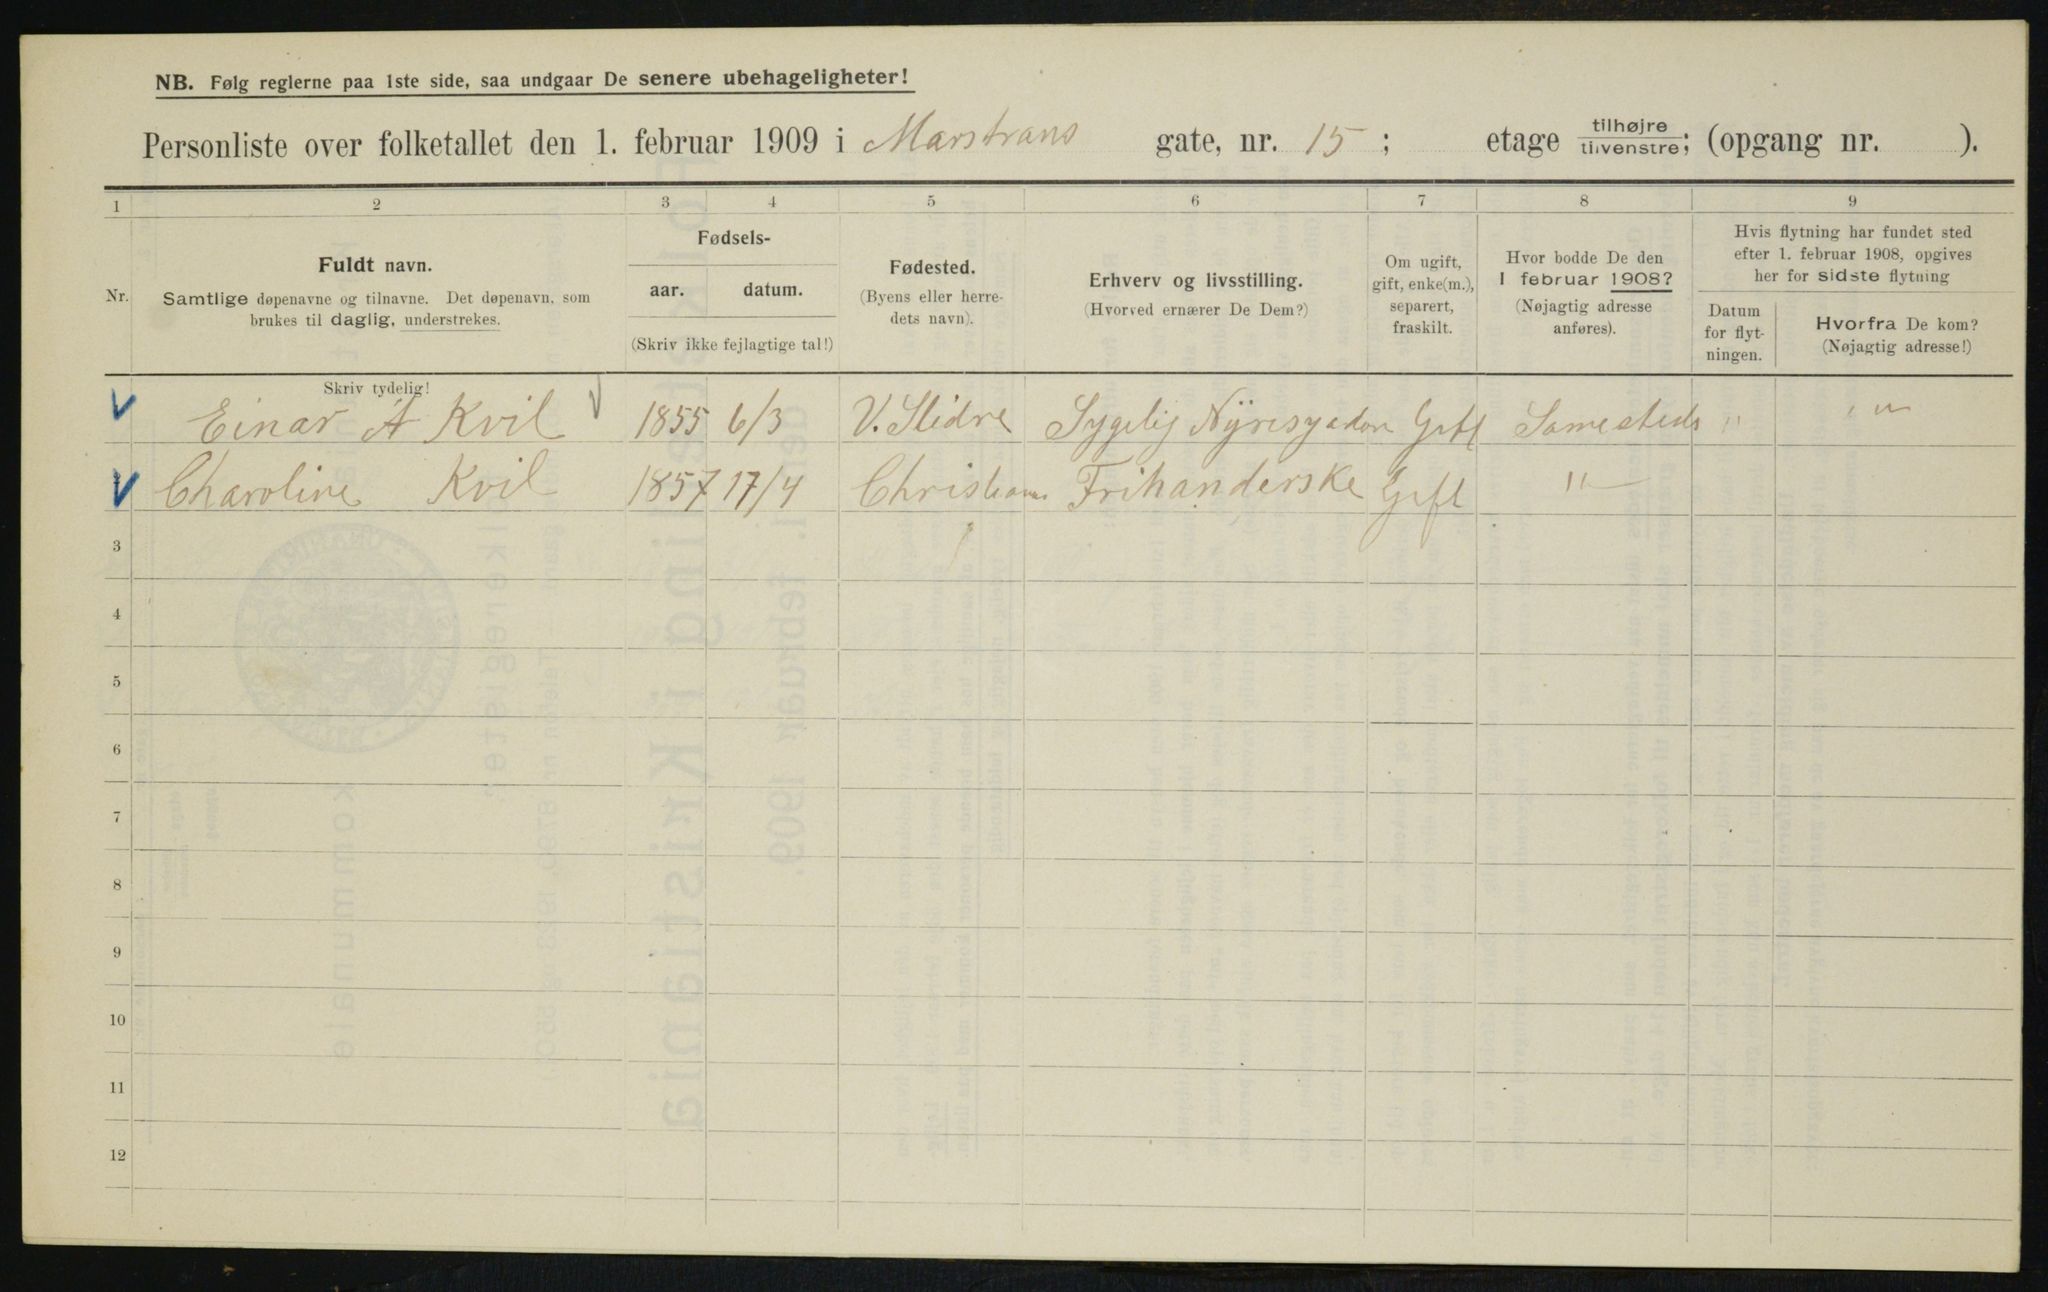 NB. Følg reglerne paa 1ste side, saa undgaar De senere ubehageligheter!
Personliste over folketallet den 1. februar 1909 i Marstrans gate, nr. 15 ; etage tilhøjre tilvenstre; (opgang nr. ).
1 2 3 4 5 6 7 8 9
Nr.
Fuldt navn.
Samtlige døpenavne og tilnavne. Det døpenavn, som
brukes til daglig, understrekes.
Fødsels-
aar. datum.
(Skriv ikke fejlagtige tal!)
Fødested.
(Byens eller herre-
dets navn).
Erhverv og livsstilling.
(Hvorved ernærer De Dem?)
Om ugift,
gift, enke(m.),
separert,
fraskilt.
Hvor bodde De den
1 februar 1908?
(Nøjagtig adresse
anføres).
Hvis flytning har fundet sted
efter 1. februar 1908, opgives
her for sidste flytning
Datum
for flyt-
ningen.
Hvorfra De kom?
(Nøjagtig adresse!)
Skriv tydelig!
Einar A Kvil 1855 6/3 V. Slidre Sygelig Gift Samesteds " "
Charoline Kvil 1857 17/4 Christiania Frihanderske Gift "
3
4
5
6
7
8
9
10
11
12